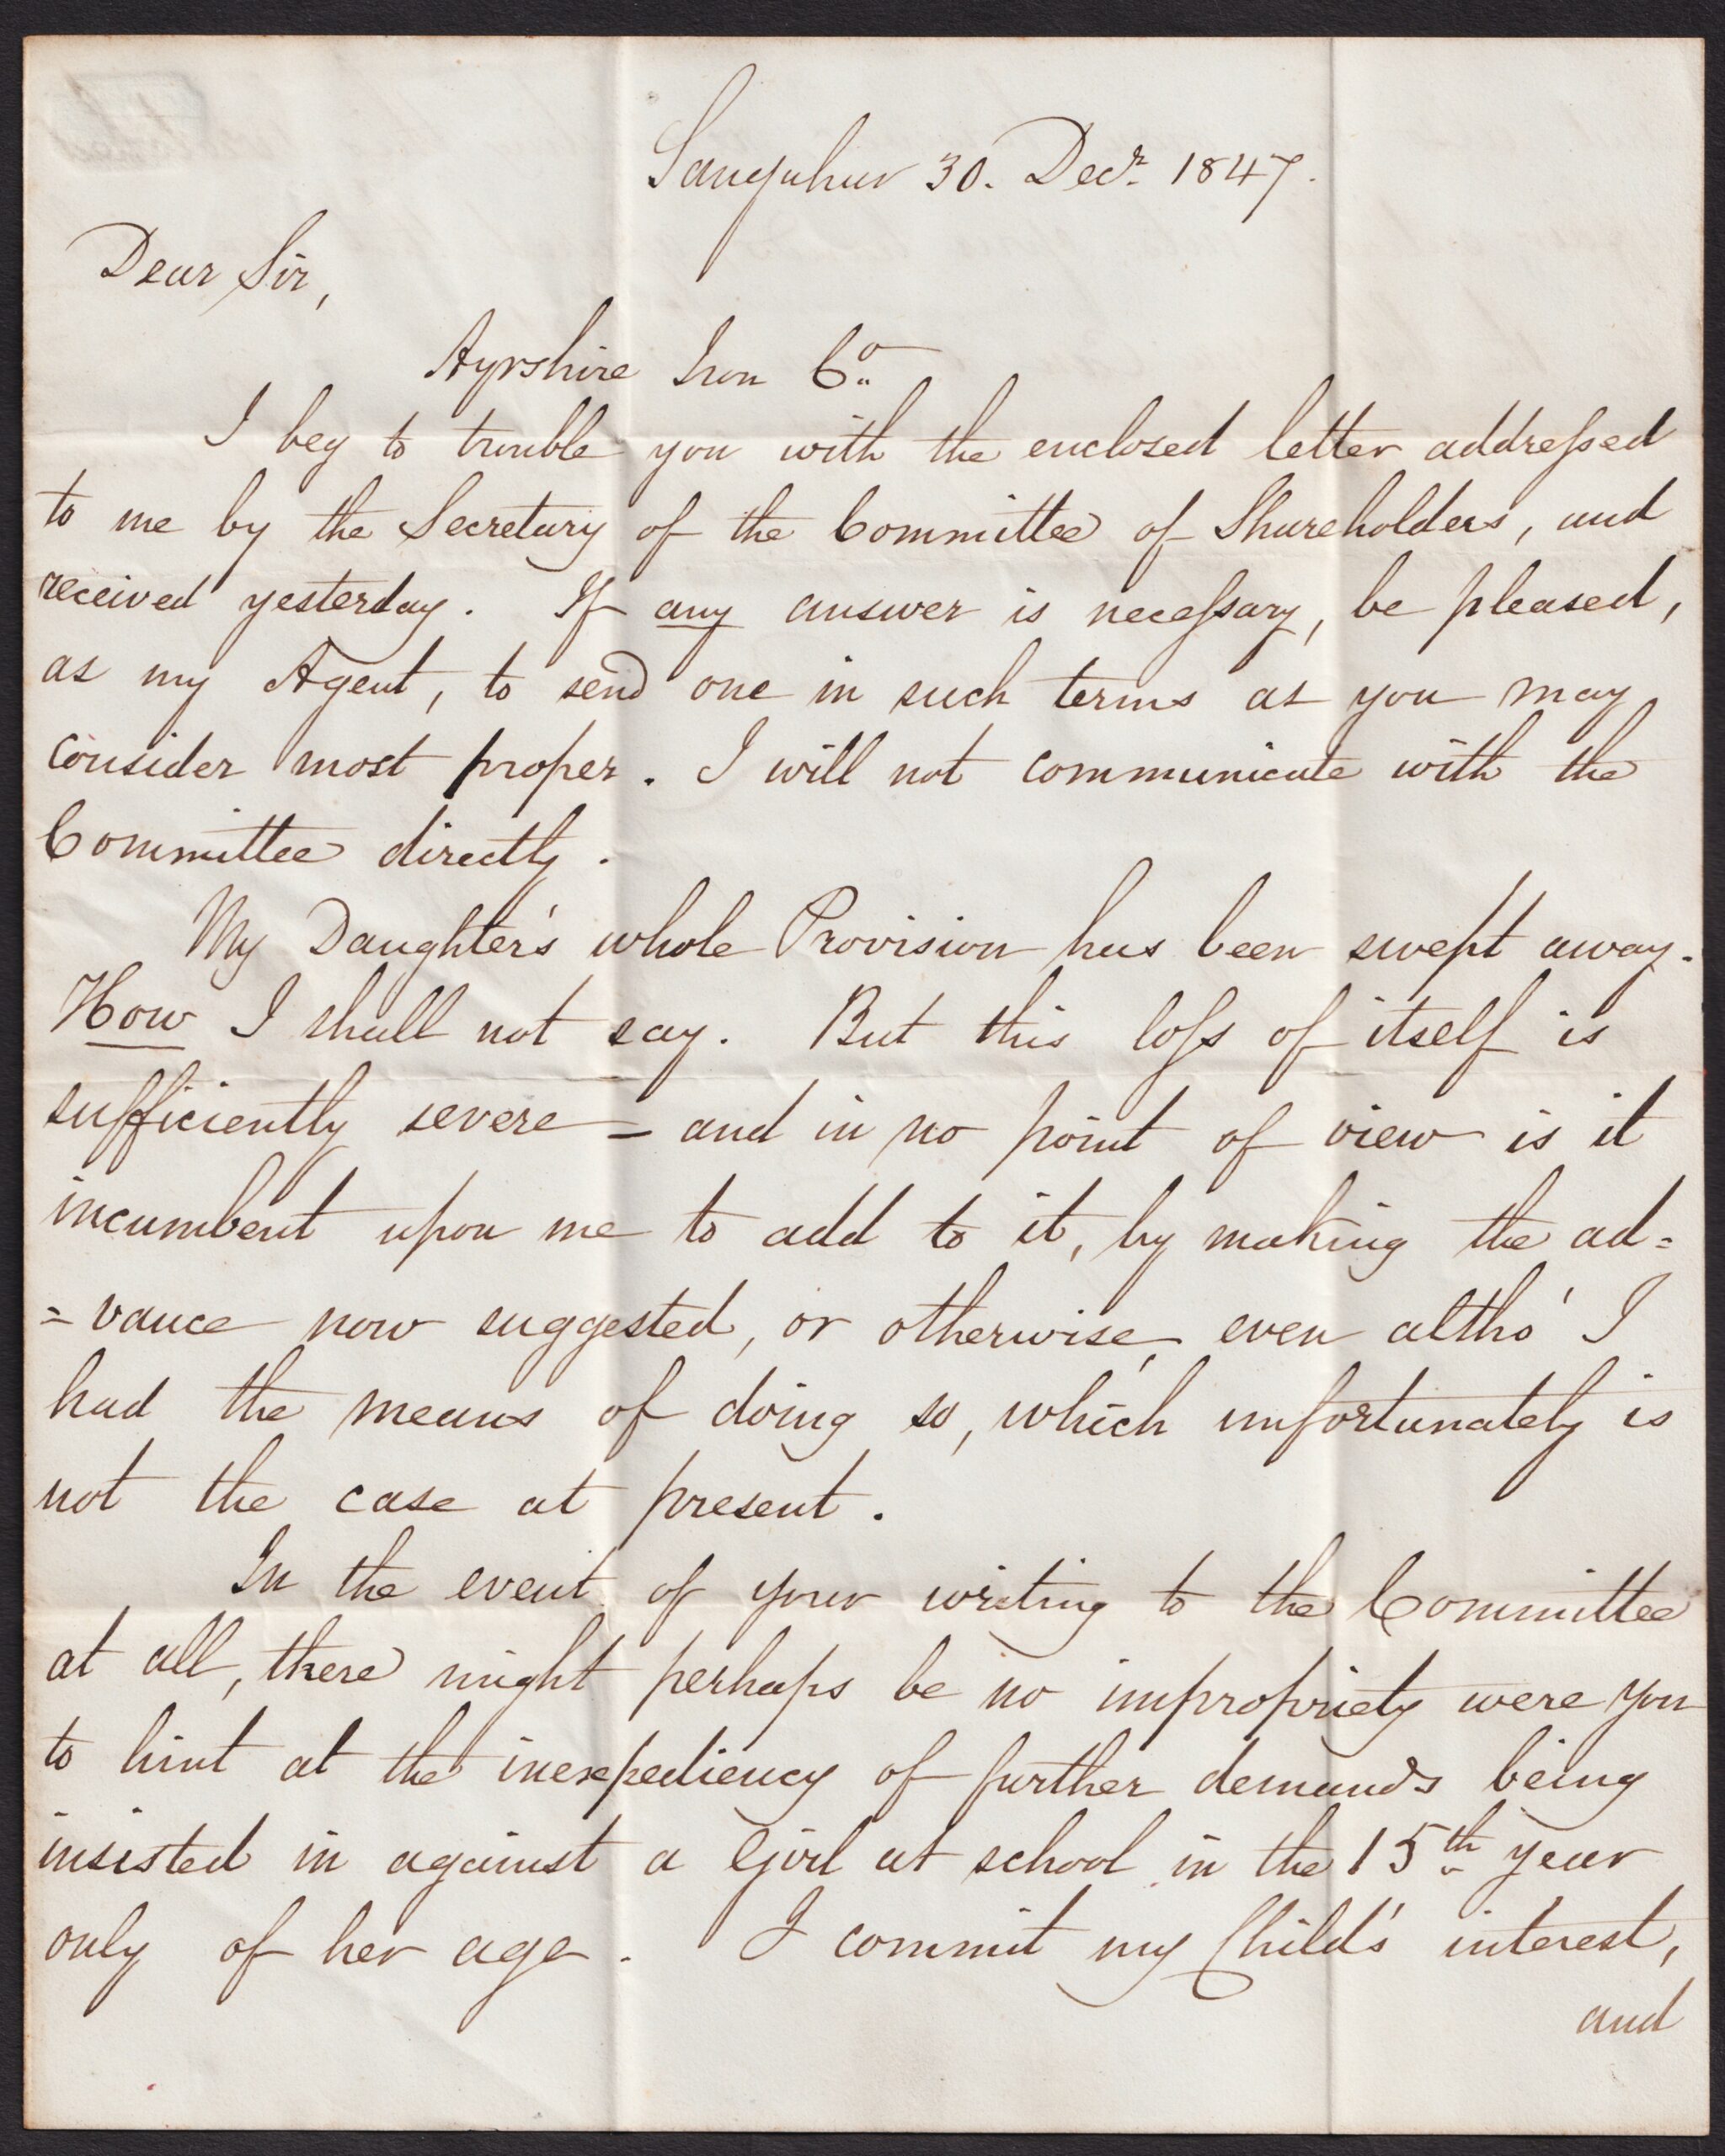 Sanquhar 30. Decr. 1847.
Dear Sir,
Ayrshire Iron Co.
I beg to trouble you with the enclosed letter addressed
to me by the Secretary of the Committee of Shareholders, and
received yesterday. If any answer is necessary, be pleased,
as my Agent, to send one in such terms as you may
consider most proper. I will not communicate with the
Committee directly.
My Daughter's whole Provision has been swept away.
How I shall not say. But this loss of itself is
sufficiently severe – and in no point of view is it
incumbent upon me to add to it, by making the ad=
=vance now suggested, or otherwise, even altho' I
had the means of doing so, which unfortunately is
not the case at present.
In the event of your writing to the Committee
at all, there might perhaps be no impropriety were you
to hint at the inexpediency of further demands being
insisted in against a Girl at school in the 15th year
only of her age. I commit my Child's interest,
and